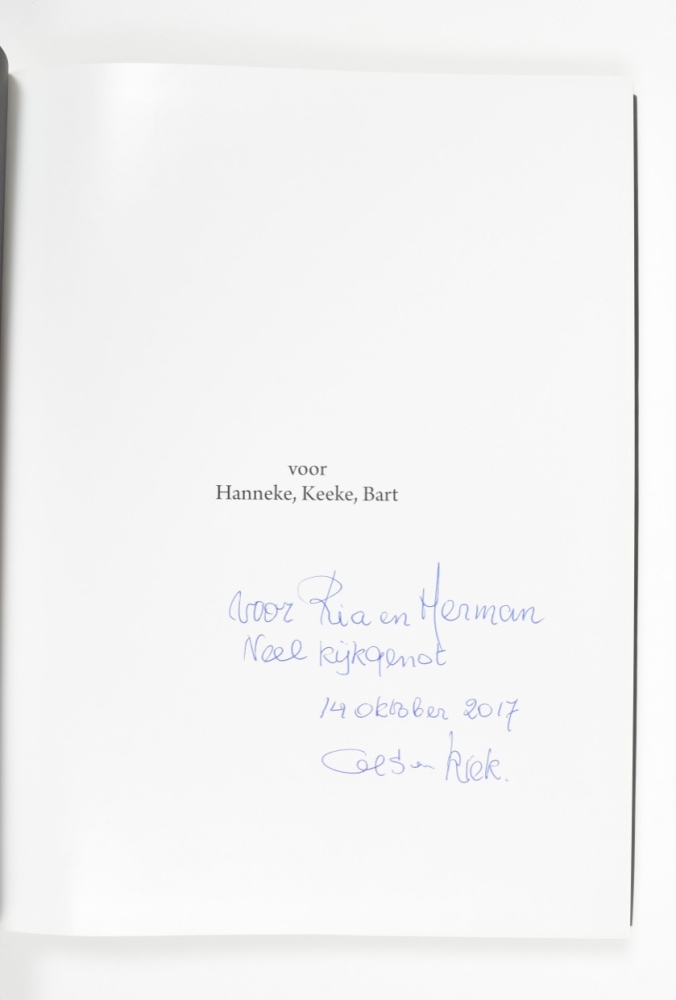 voor
Hanneke, Keeke, Bart
voor Ria en Herman
Veel kijkgenot
14 oktober 2017
en Kiek.